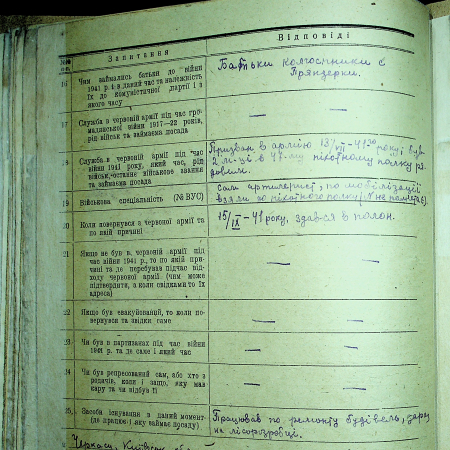 Запитання
Відповіді
16
Чим займались батьки до війни
1941 р. і в даний час та належність
їх до комуністичної партії і з
якого часу
Батьки колгоспники с
17
Служба в червоній армії під час гро-
мадянської війни 1917—22 років,
рід військ та займаєма посада
— —
18
Служба в червоній армії під час
війни 1941 року, який час, рід
військ, останнє військове звання
та займаєма посада
Призван в армію 13/VII-41 року і був
2 м-ці в 47-му піхотному полку ря-
довим.
19
Військова спеціальність (№ ВУС)
Сам артилерист, по мобілізації
взяли до піхотного полку
20
Коли повернувся з червоної армії та
по якій причині
15/IX-41 року, здався в полон.
21
Якщо не був в червоній армії під
час війни 1941 р., то по якій при-
чині та де перебував підчас від-
ходу червоної армії (чим може
підтвердити, з коли свідками то їх
адреса)
— —
22
Якщо був евакуйований, то коли по-
вернувся та звідки саме
— —
23
Чи був в партизанах під час війни
1941 р. та де саме і який час
— —
24
Чи був репресований сам, або хто з
родичів, коли і защо, яку мав
кару та чи відбув її
— —
25
Засоби існування в даний момент
(де працює і яку займає посаду)
Працював по ремонту будівель, зараз
на лісорозробці.